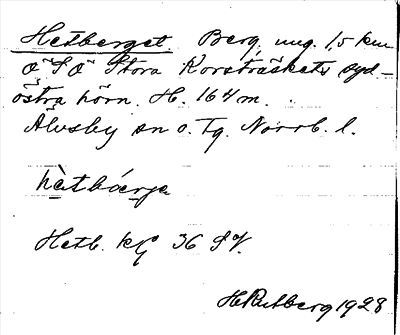 Hetberget. Berg, ung. 1,5 km
OSO Stora Korsträskets syd-
östra hörn. H. 164 m.
Älvsby sn o. tg. Norrb. l.
hètbǽrja
Hetb. kG 36 SV.
H Rutberg 1928